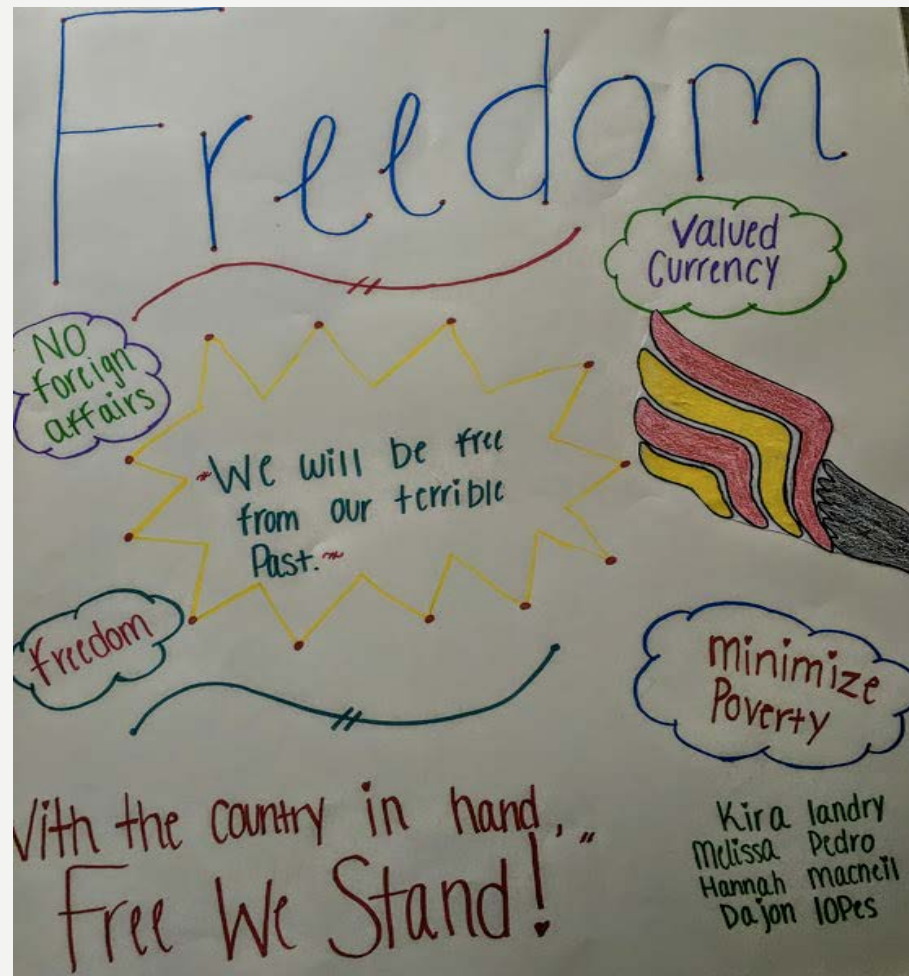 Freedom
Valued
Currency
NO
foreign
affairs
~We will be free
from our terrible
Past.~
freedom
minimize
Poverty
With the country in hand,
Free We Stand!
Kira landry
Melissa Pedro
Hannah macneil
Dajon lopes